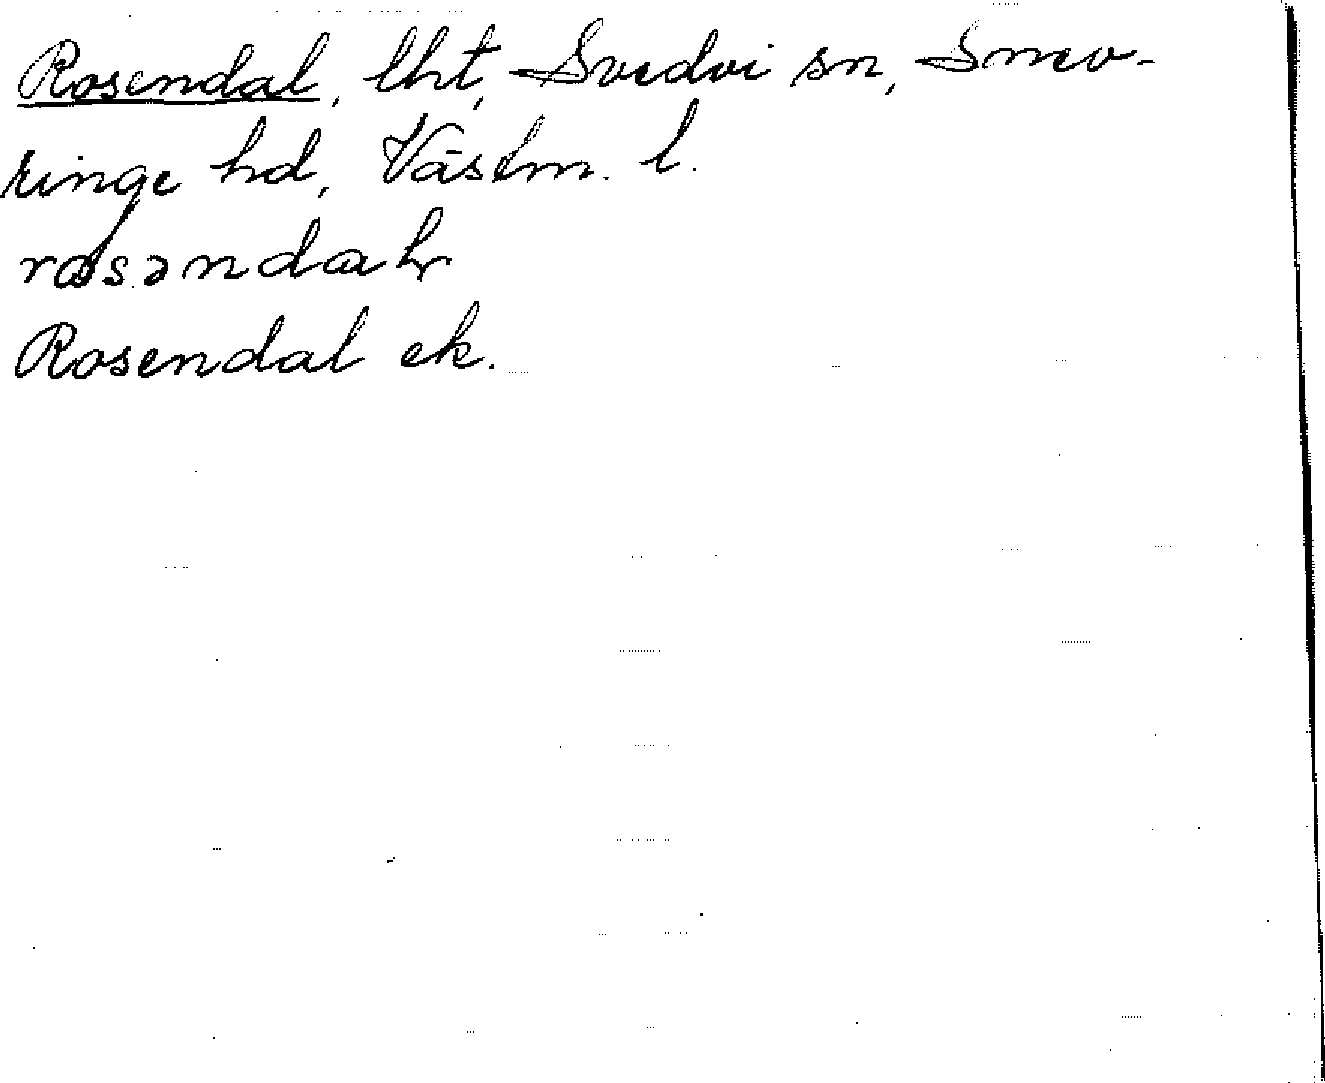 Rosendal, lht, Svedvi sn, Snev-
ringe hd, Västm. l.
Rosendal ek.